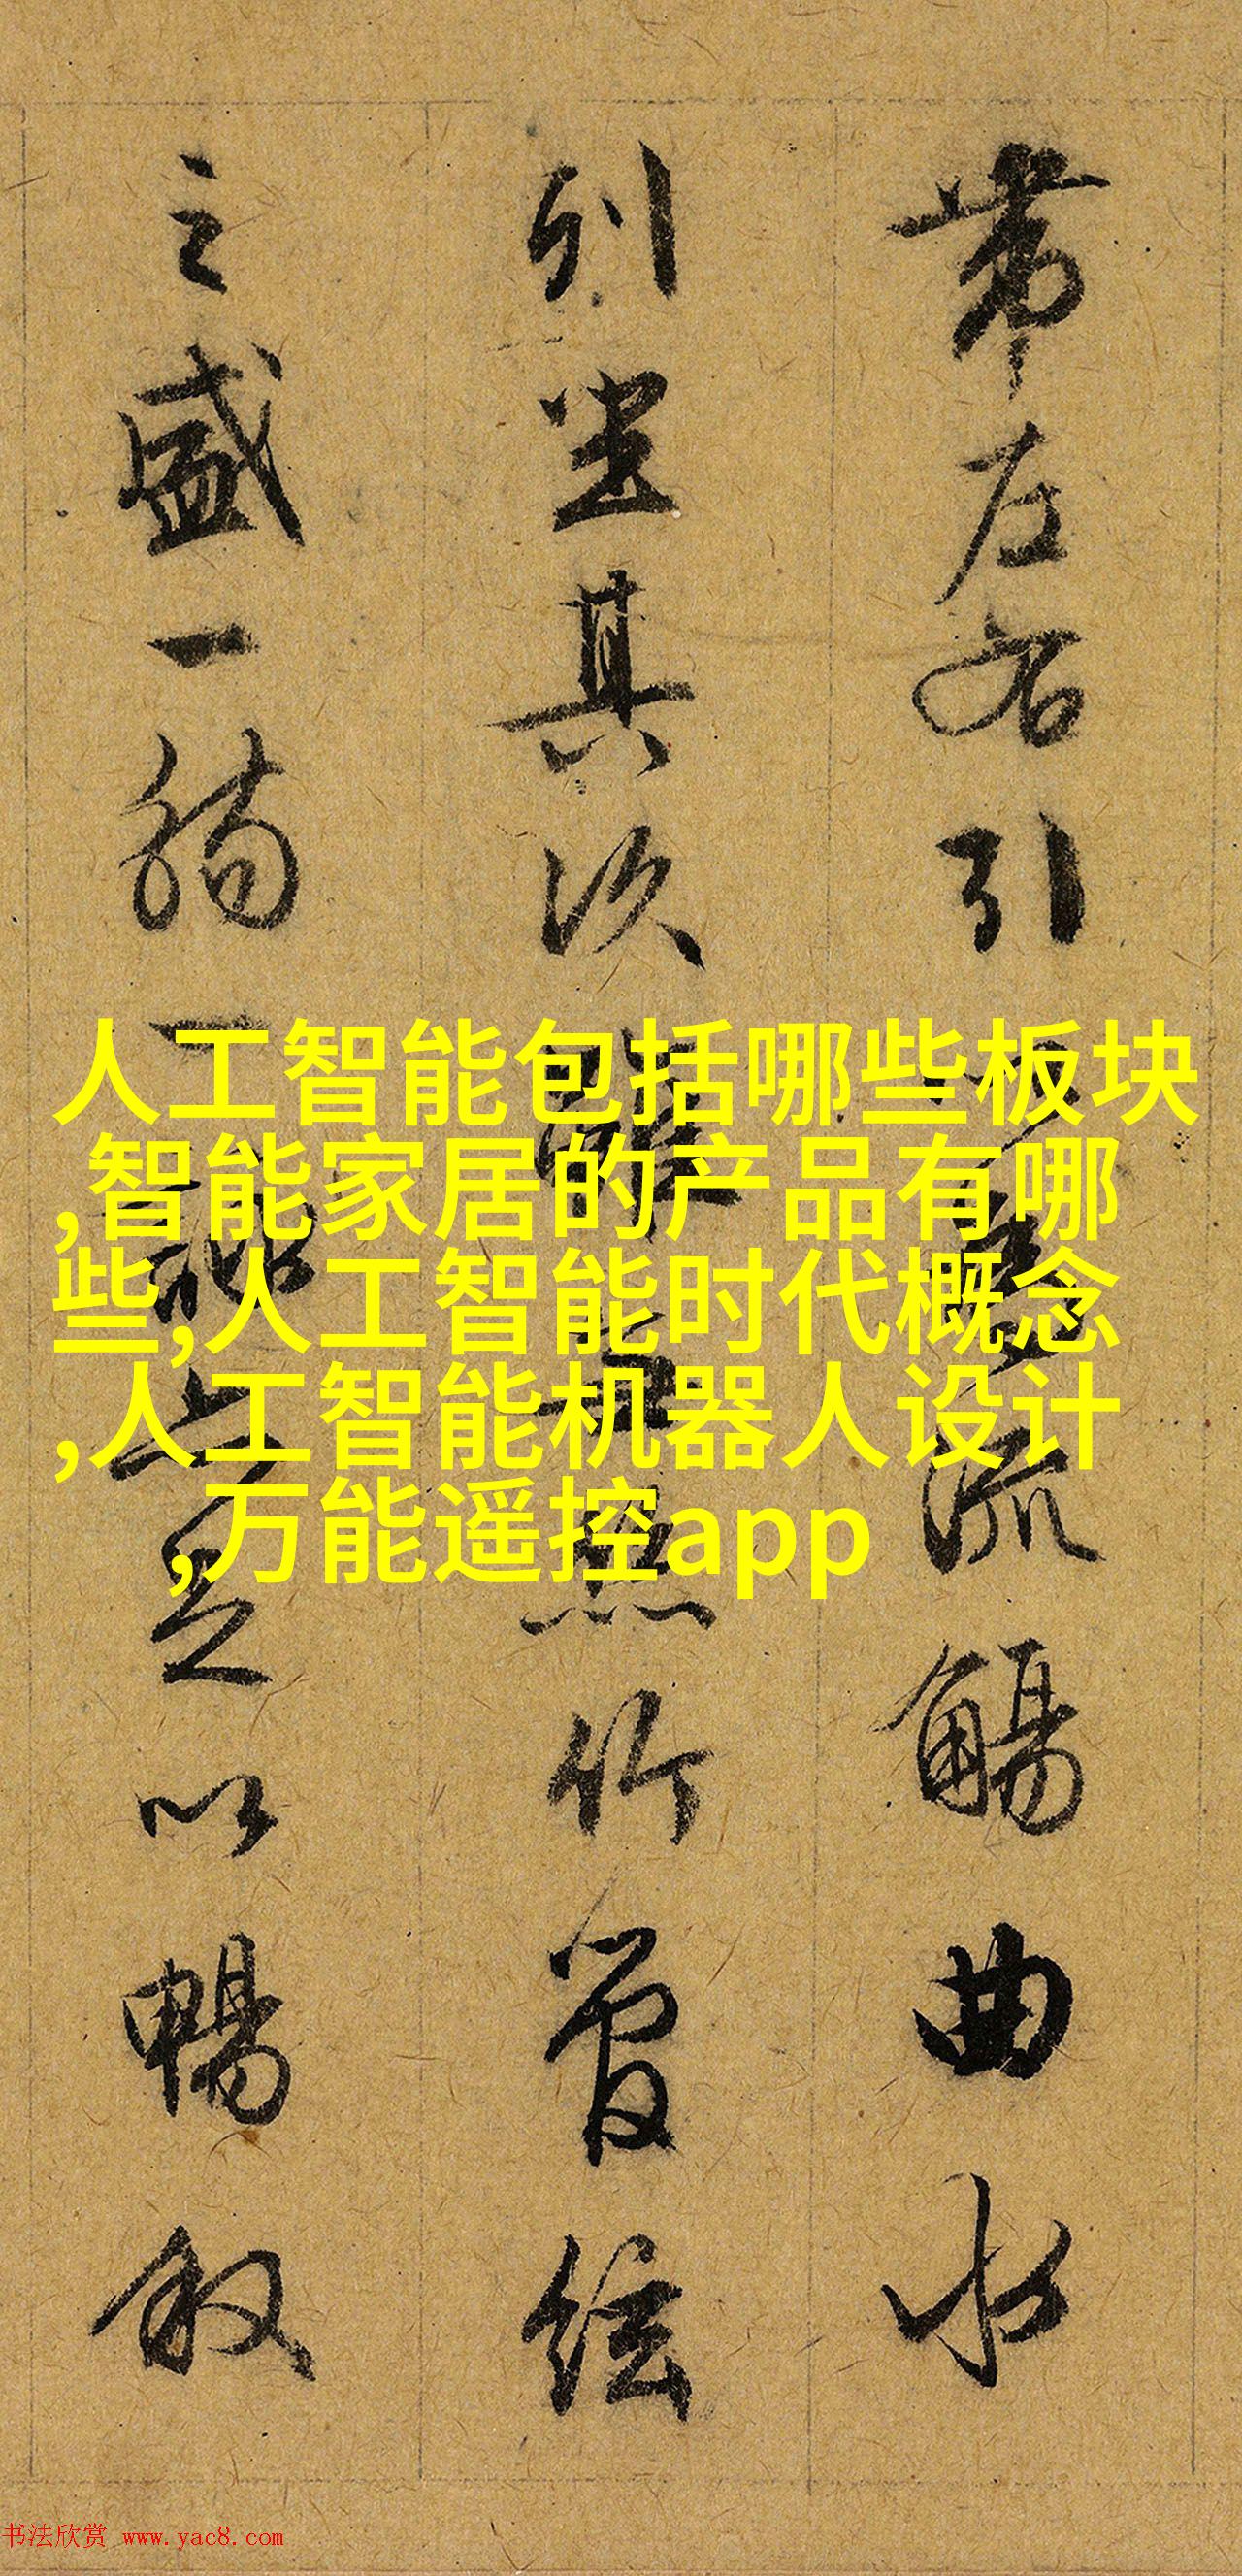 帶左右引流觴曲水
列坐其次雖無竹管絃
之盛一觴一詠足以暢敘
人工智能包括哪些板块
,智能家居的产品有哪
些,人工智能时代概念
,人工智能机器人设计
,万能遥控app
书法欣赏 www.yac8.com